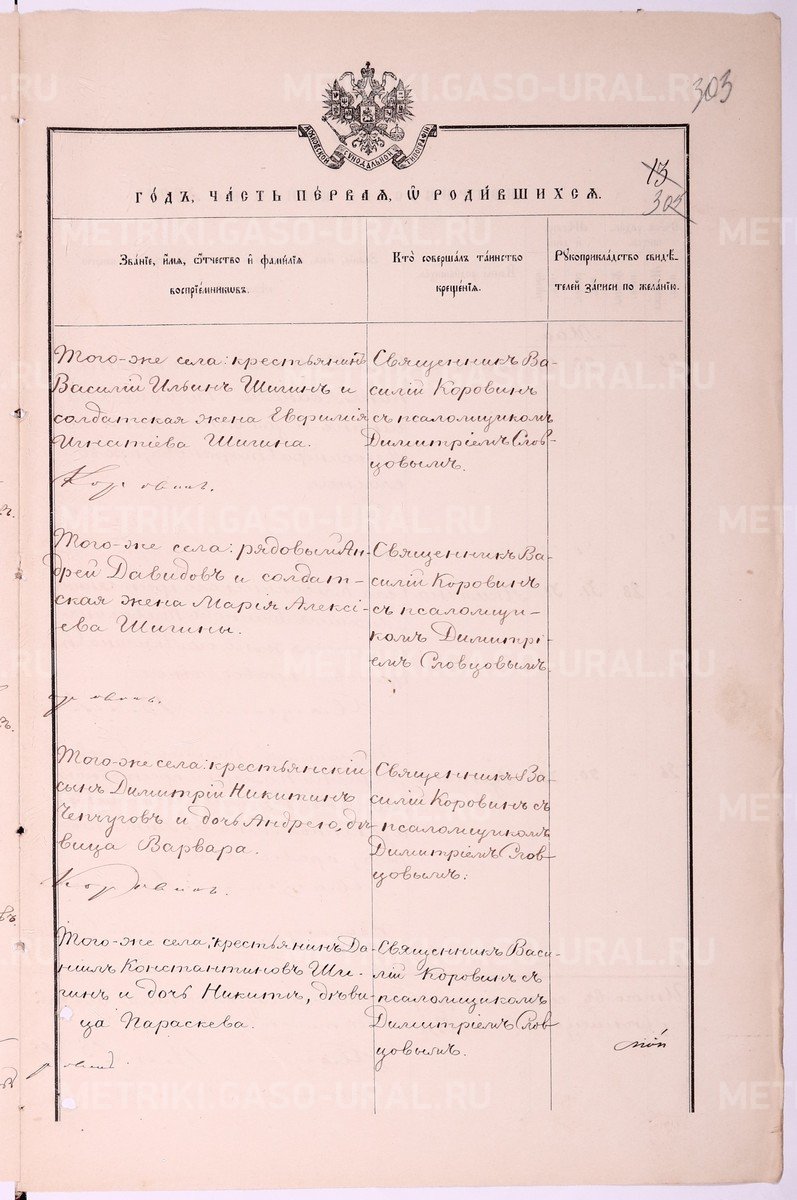 303
13
303
МОСКОВСКОЙ СѴНОДАЛЬНОЙ ТИПОГРАФІИ
ГОДЪ, ЧАСТЬ ПЕРВАЯ, Ѿ РОДИВШИХСЯ.
Званіе, имя, отчество и фамилія
воспріемниковъ.
Кто совершалъ таинство
крещенія.
Рукоприкладство свидѣ-
телей записи по желанію.
Того-же села: крестьянинъ
Василій Ильинъ Шигинъ и
солдатская жена Евфимія
Игнатіева Шигина.
Коровинъ.
Священникъ Ва-
силій Коровинъ
съ псаломщикомъ
Димитріемъ Слов-
цовымъ.
Того-же села: рядовый Ан-
дрей Давидовъ и солдат-
ская жена Марія Алексі-
ева Шигины.
Священникъ Ва-
силій Коровинъ
съ псаломщи-
комъ Димитрі-
емъ Словцовымъ
Того-же села: крестьянскій
сынъ Димитрій Никитинъ
Чепчуговъ и дочь Андрея, дѣ-
вица Варвара.
Коровинъ.
Священникъ Ва-
силій Коровинъ съ
псаломщикомъ
Димитріемъ Слов-
цовымъ.
Того-же села, крестьянинъ Да-
ніилъ Константиновъ Ши-
гинъ и дочь Никиты, дѣви-
ца Параскева.
Священникъ Васи-
лій Коровинъ съ
псаломщикомъ
Димитріемъ Слов-
цовымъ.
METRIKI.GASO-URAL.RU